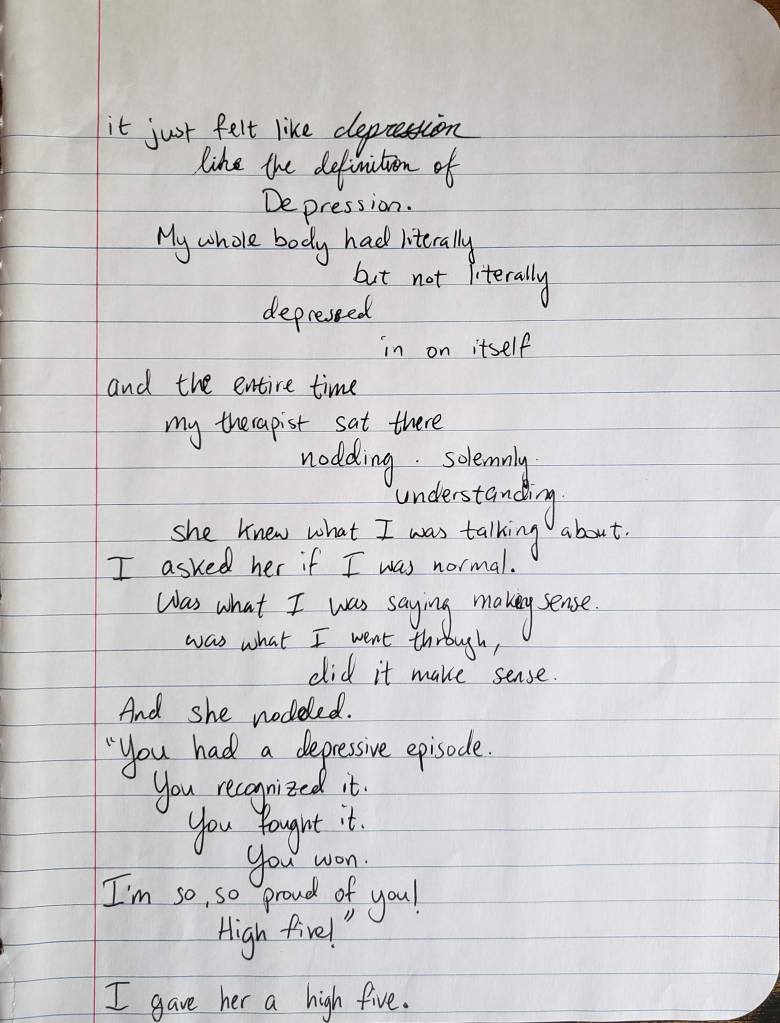 it just felt like depression
like the definition of
Depression.
My whole body had literally
but not literally
depressed
in on itself
and the entire time
my therapist sat there
nodding. solemnly.
understanding.
she knew what I was talking about.
I asked her if I was normal.
Was what I was saying making sense.
was what I went through,
did it make sense.
And she nodded.
"You had a depressive episode.
You recognized it.
You fought it.
You won.
I'm so, so proud of you!
High five!"
I gave her a high five.